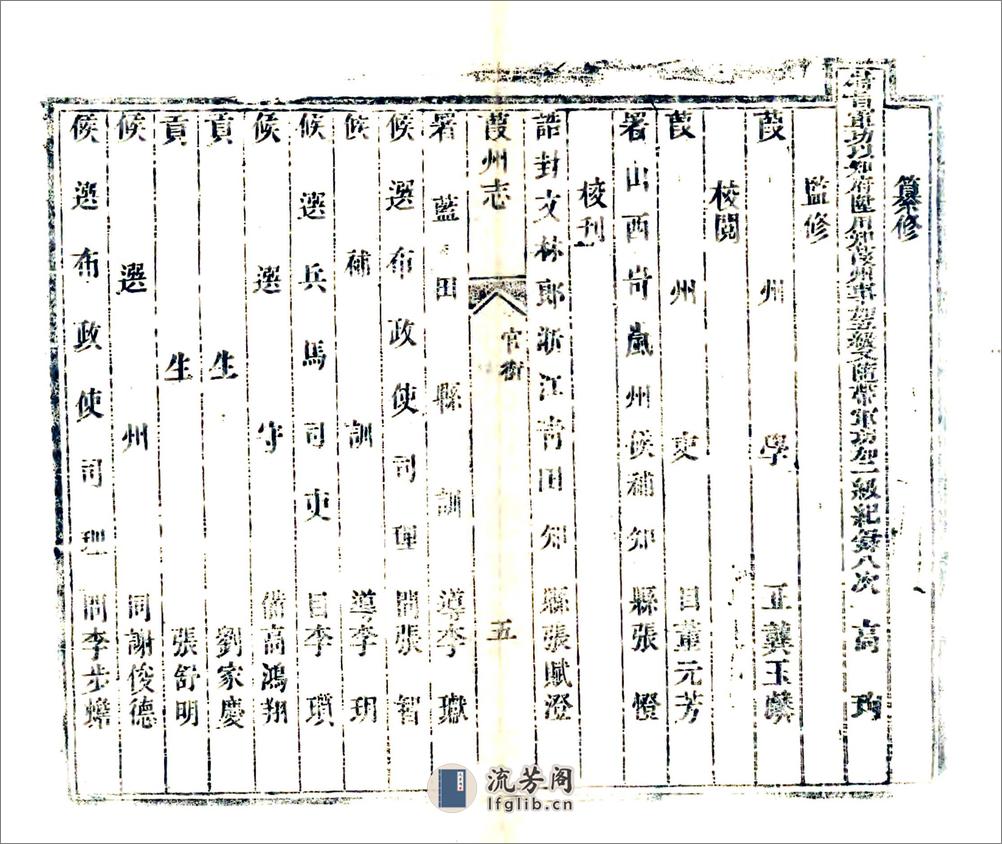 纂修
軍功以知府陞用知葭州事加五級又隨帶軍功加二級紀錄八次 高珣
監修
葭州學正龔玉麟
校閱
葭州吏目董元芳
署山西岢嵐州候補知縣張燈
校刊
誥封文林郎浙江青田知縣張賦澄
葭州志 官銜 五
署藍田縣訓導李璥
候選布政使司理問張智
候補訓導李玥
候選兵馬司吏目李瓚
候選守備高鴻翔
貢生劉家慶
貢生張舒明
候選州同謝俊德
候選布政使司理問李步蟾
流芳阁
lfglib.cn